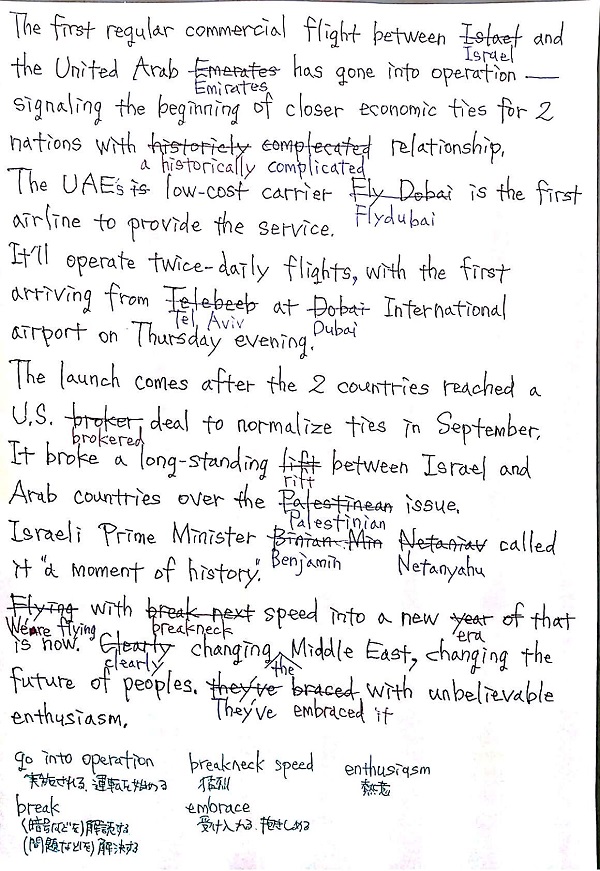 The first regular commercial flight between Islaef and
Israel
the United Arab Emerates has gone into operation —
Emirates
signaling the beginning of closer economic ties for 2
nations with historicly complecated relationship.
a historically complicated
The UAE's is low-cost carrier Fly Dobai is the first
Flydubai
airline to provide the service.
It'll operate twice-daily flights, with the first
arriving from Telebeeb at Dobai International
Tel Aviv Dubai
airport on Thursday evening.
The launch comes after the 2 countries reached a
U.S. broker deal to normalize ties in September.
brokered
It broke a long-standing lift between Israel and
rift
Arab countries over the Palestinean issue.
Palestinian
Israeli Prime Minister Binian Min Netaniav called
Benjamin Netanyahu
it "a moment of history."
Flying with break next speed into a new year of that
We're flying breakneck era
is now. Clearly changing Middle East, changing the
clearly the
future of peoples. they've braced with unbelievable
They've embraced it
enthusiasm.
go into operation breakneck speed enthusiasm
実施される、運転を始める 猛烈 熱意
break embrace
(暗号などを)解読する 受け入れる、抱きしめる
(問題などを)解決する